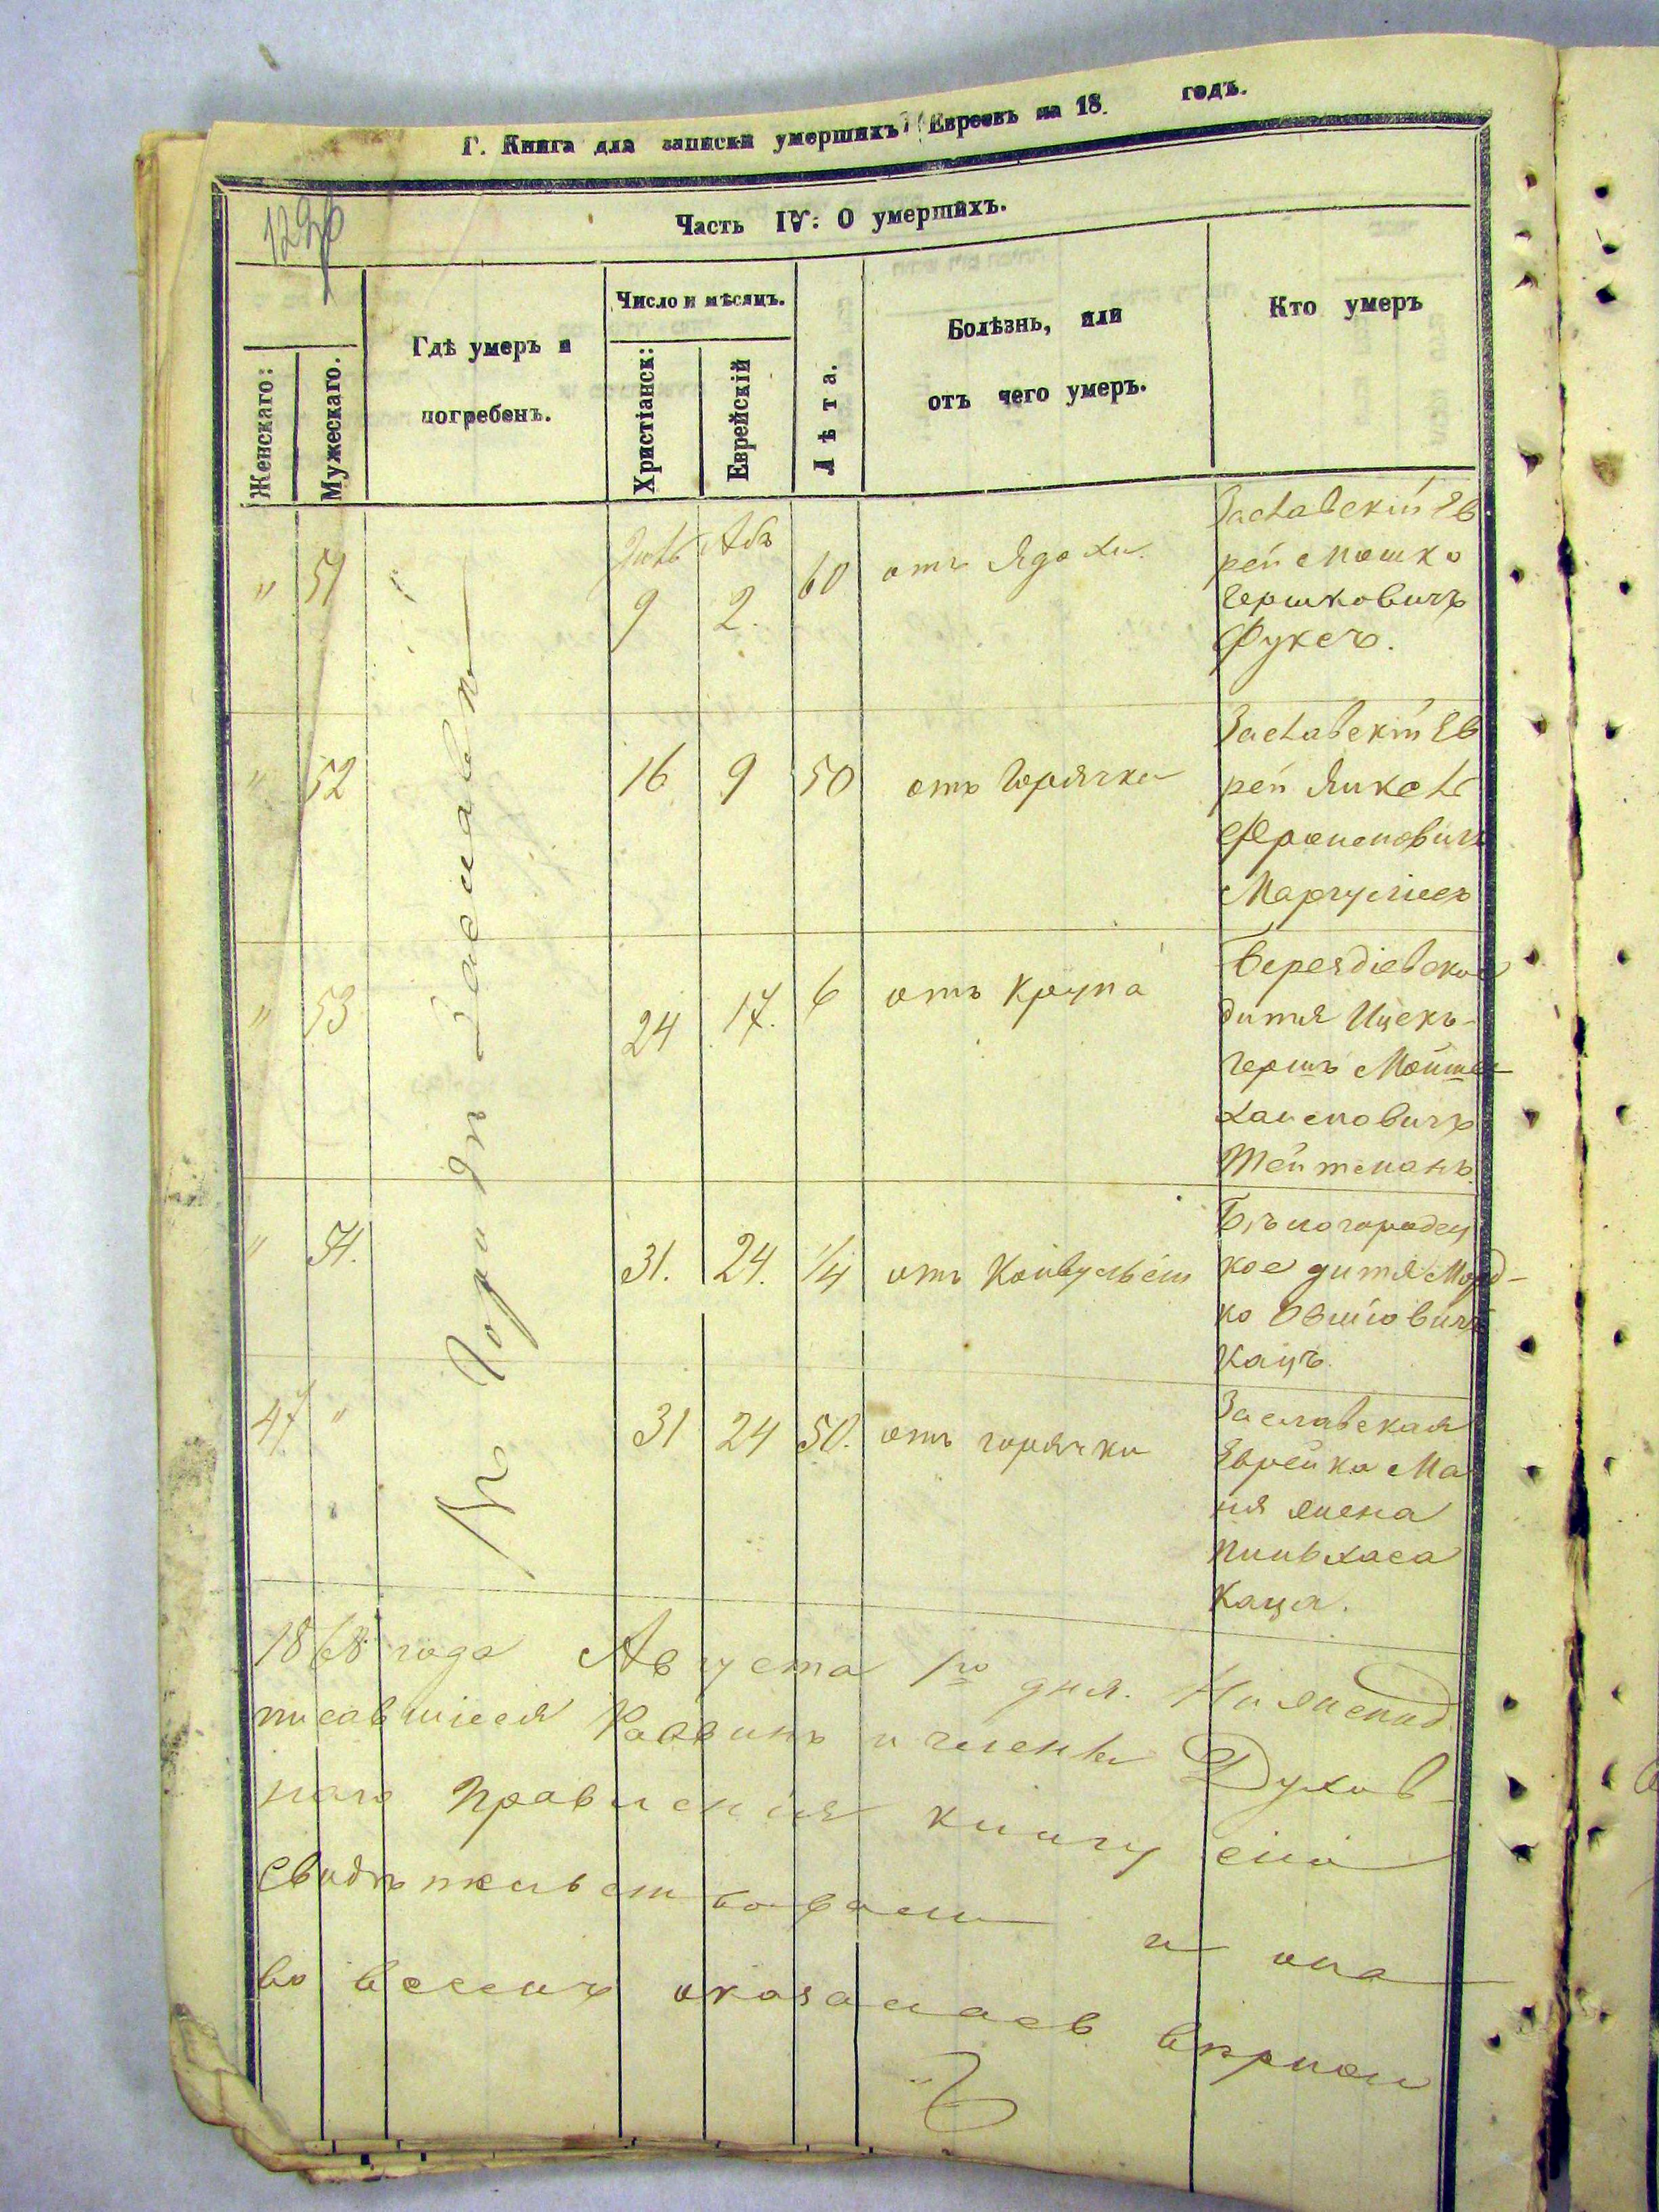 Г. Книга для записки умершихъ Евреевъ на 18 годъ.
Часть IV: О умершихъ.
Женскаго:
Мужескаго.
Гдѣ умеръ и
погребенъ.
Число и мѣсяцъ.
Христіанск:
Еврейскій
Лѣта.
Болѣзнь, или
отъ чего умеръ.
Кто умеръ
Въ Городѣ Заславлѣ
" 51
Іюль Абъ
9 2. 60
Заславскій Ев
рей Мошко
Гершковичъ
Фуксъ.
" 52 16 9 50 отъ Горячки
Заславскій Ев
рей Янкель
Фроимовичъ
Маргулісъ
" 53 24 17. 6 отъ Крупа
Берездіевское
дитя Ицекъ-
Гершъ Мойше
Хаимовичъ
Тейтманъ
" 54. 31. 24. 1/4 отъ Конвульсіи
Бѣлогородец
кое дитя Морд-
ко
Кацъ.
47 " 31 24 50. отъ горячки
Заславская
Еврейка Ма
ня жена
Пинхаса
Каца.
1868 года Августа 1го дня. Нижепод
писавшіеся Раввинъ и члены Духов-
наго Правленія книгу сію
Свидѣтельствовали и она
во всемъ оказалась вѣрною